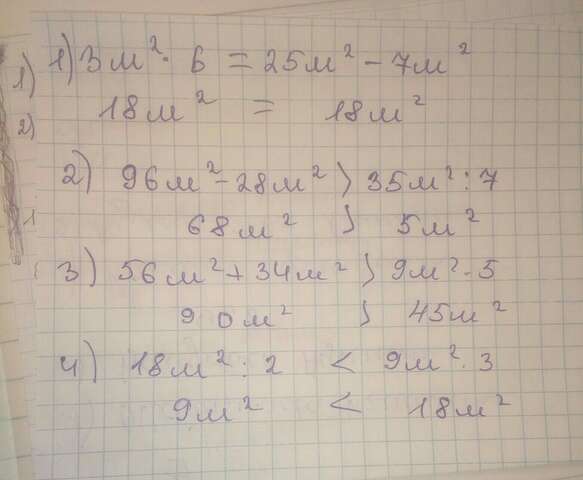 1) 3м² · 6 = 25м² - 7м²
18м² = 18м²
2) 96м² - 28м² > 35м² : 7
68м² > 5м²
3) 56м² + 34м² > 9м² · 5
90м² > 45м²
4) 18м² : 2 < 9м² · 3
9м² < 18м²
1)
2)